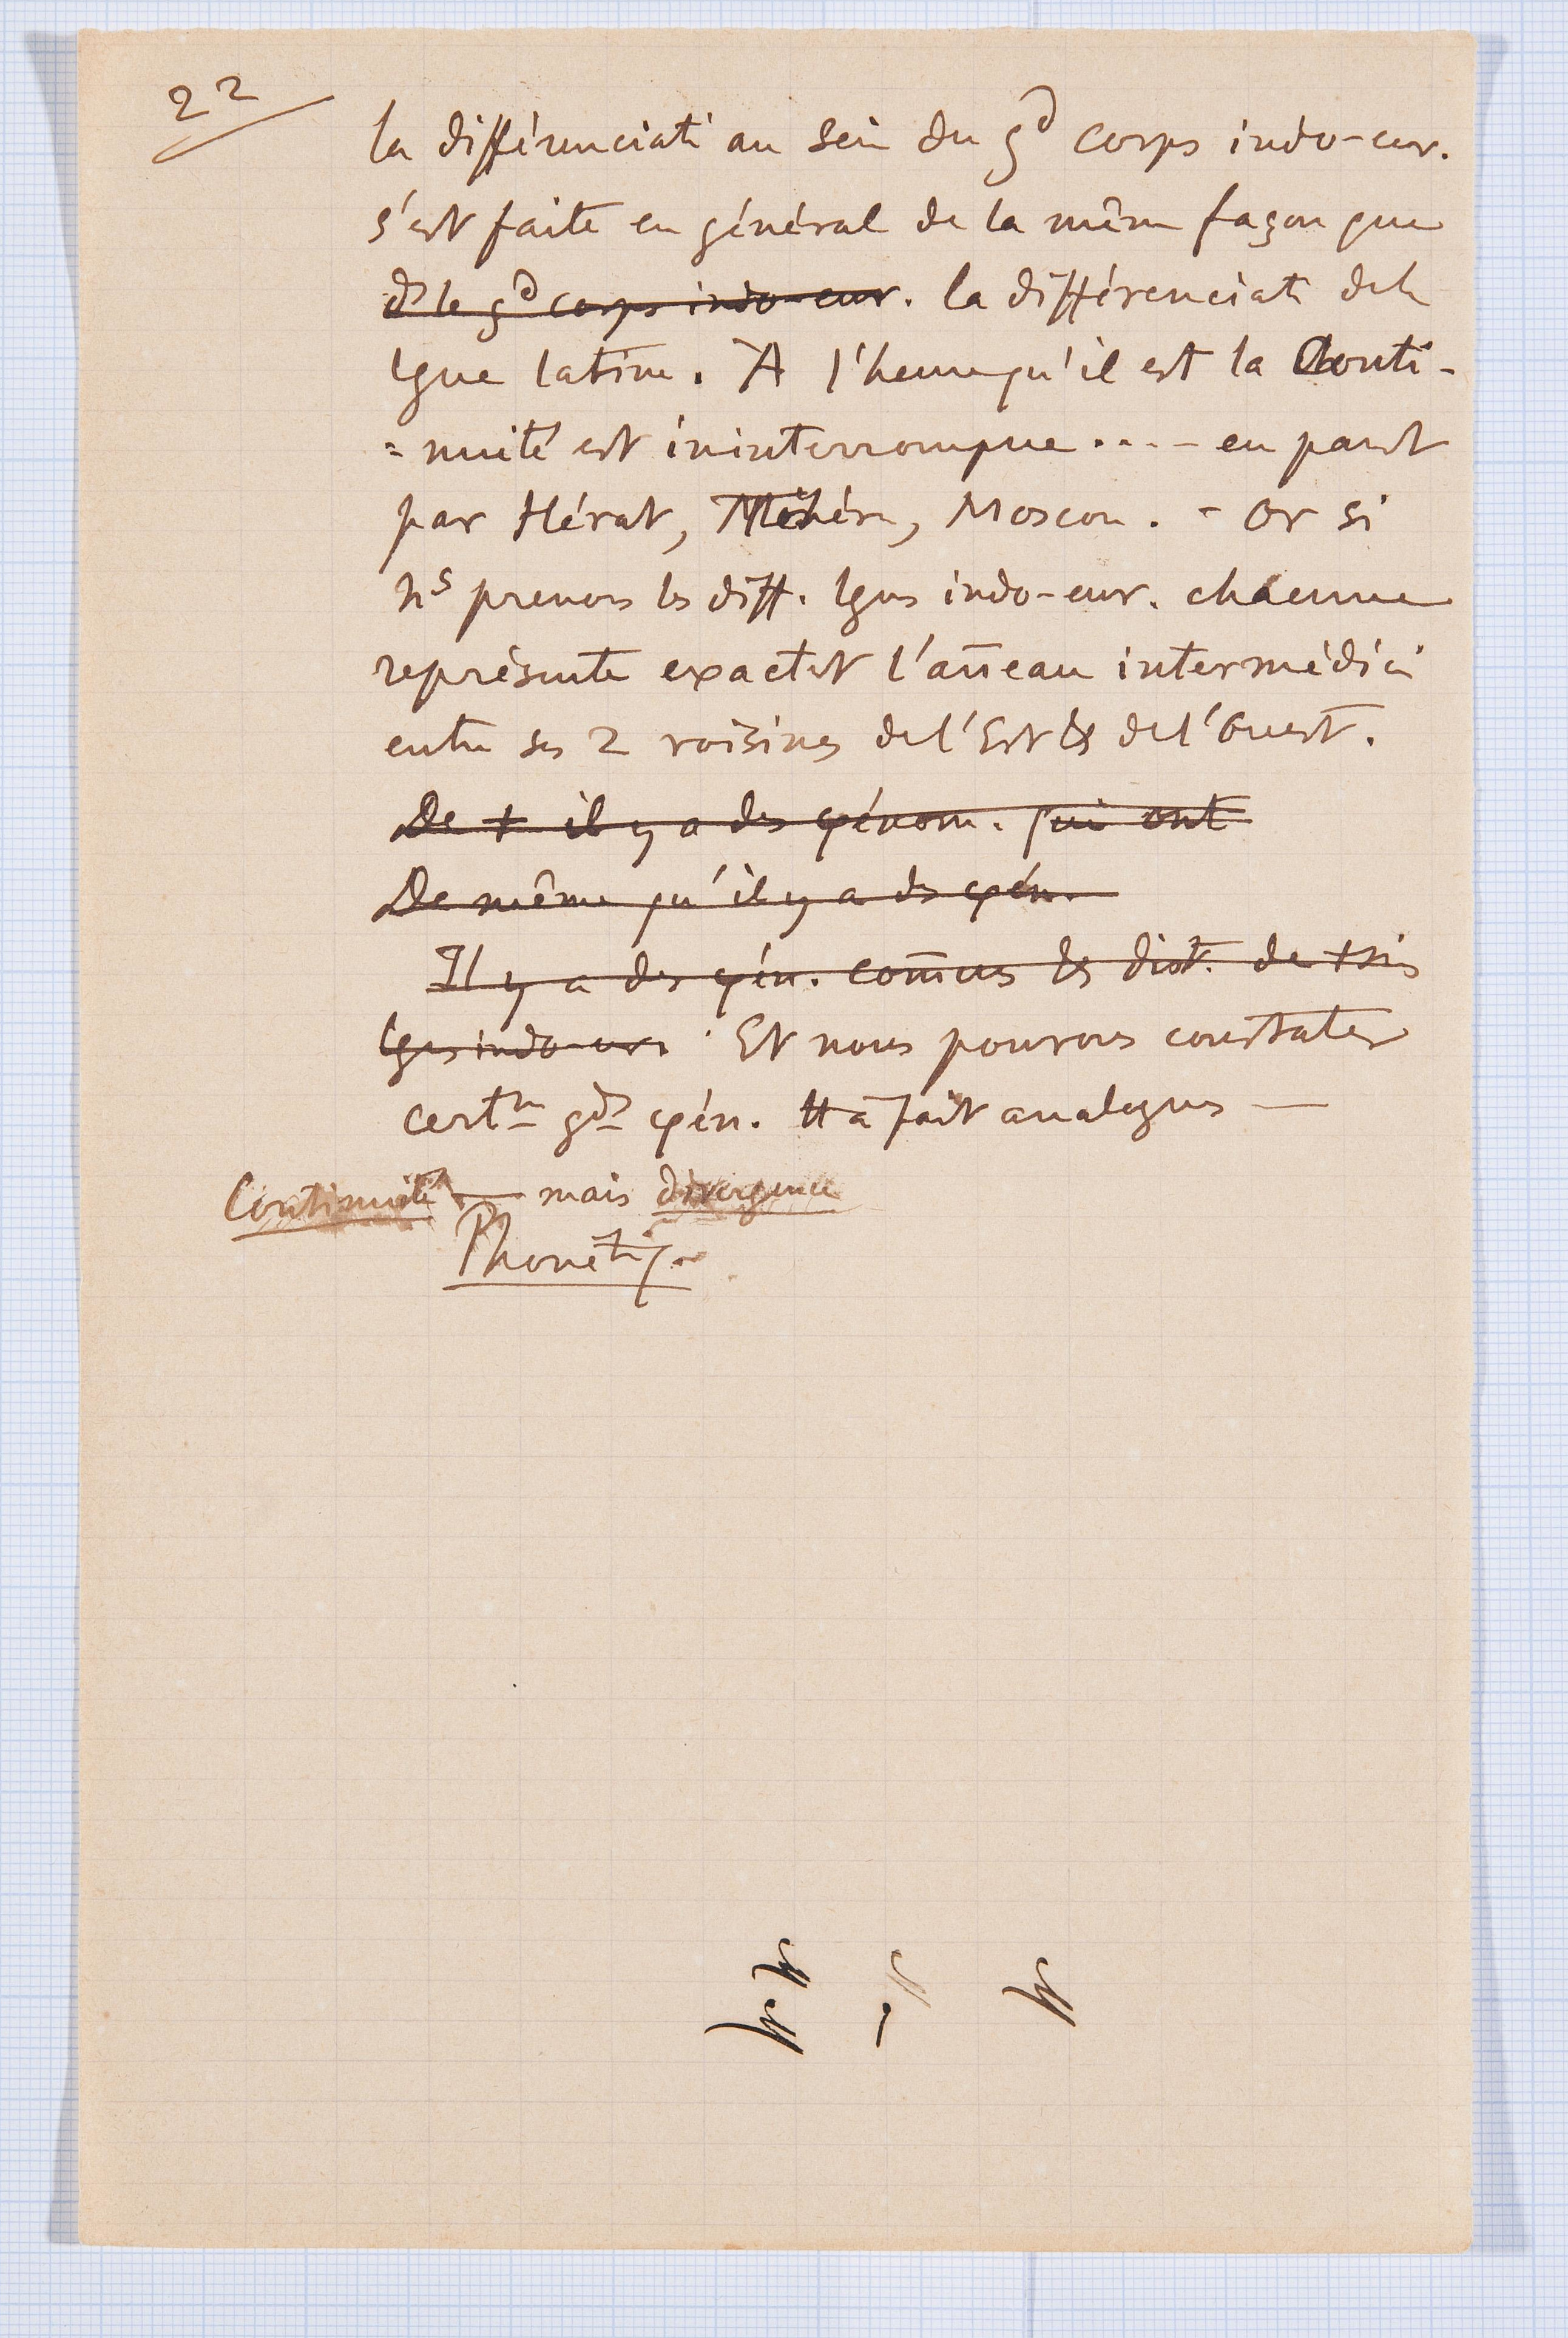 22
la différenciati au sein du gd corps indo-eur.
s'est faite en général de la même façon que
ds le gd corps indo-eur. la différenciati de la
lgue latine. A l'heure qu'il est la Conti-
=nuité est ininterrompue .... en passt
par Hérat, Téhéran, Moscou. - Or si
ns prenons les diff. lgues indo-eur. chacune
représente exactet l'anneau intermédiai
entre ses 2 voisines de l'Est & de l'Ouest.
De + il y a des φénom. qui ont
De même qu'il y a des φén.
Il y a des φén. comms de
lgues indo-eur. Et nous pouvons constater
certns gds φén. tt à fait analogues —
Continuité — mais divergence
Phonétiq.